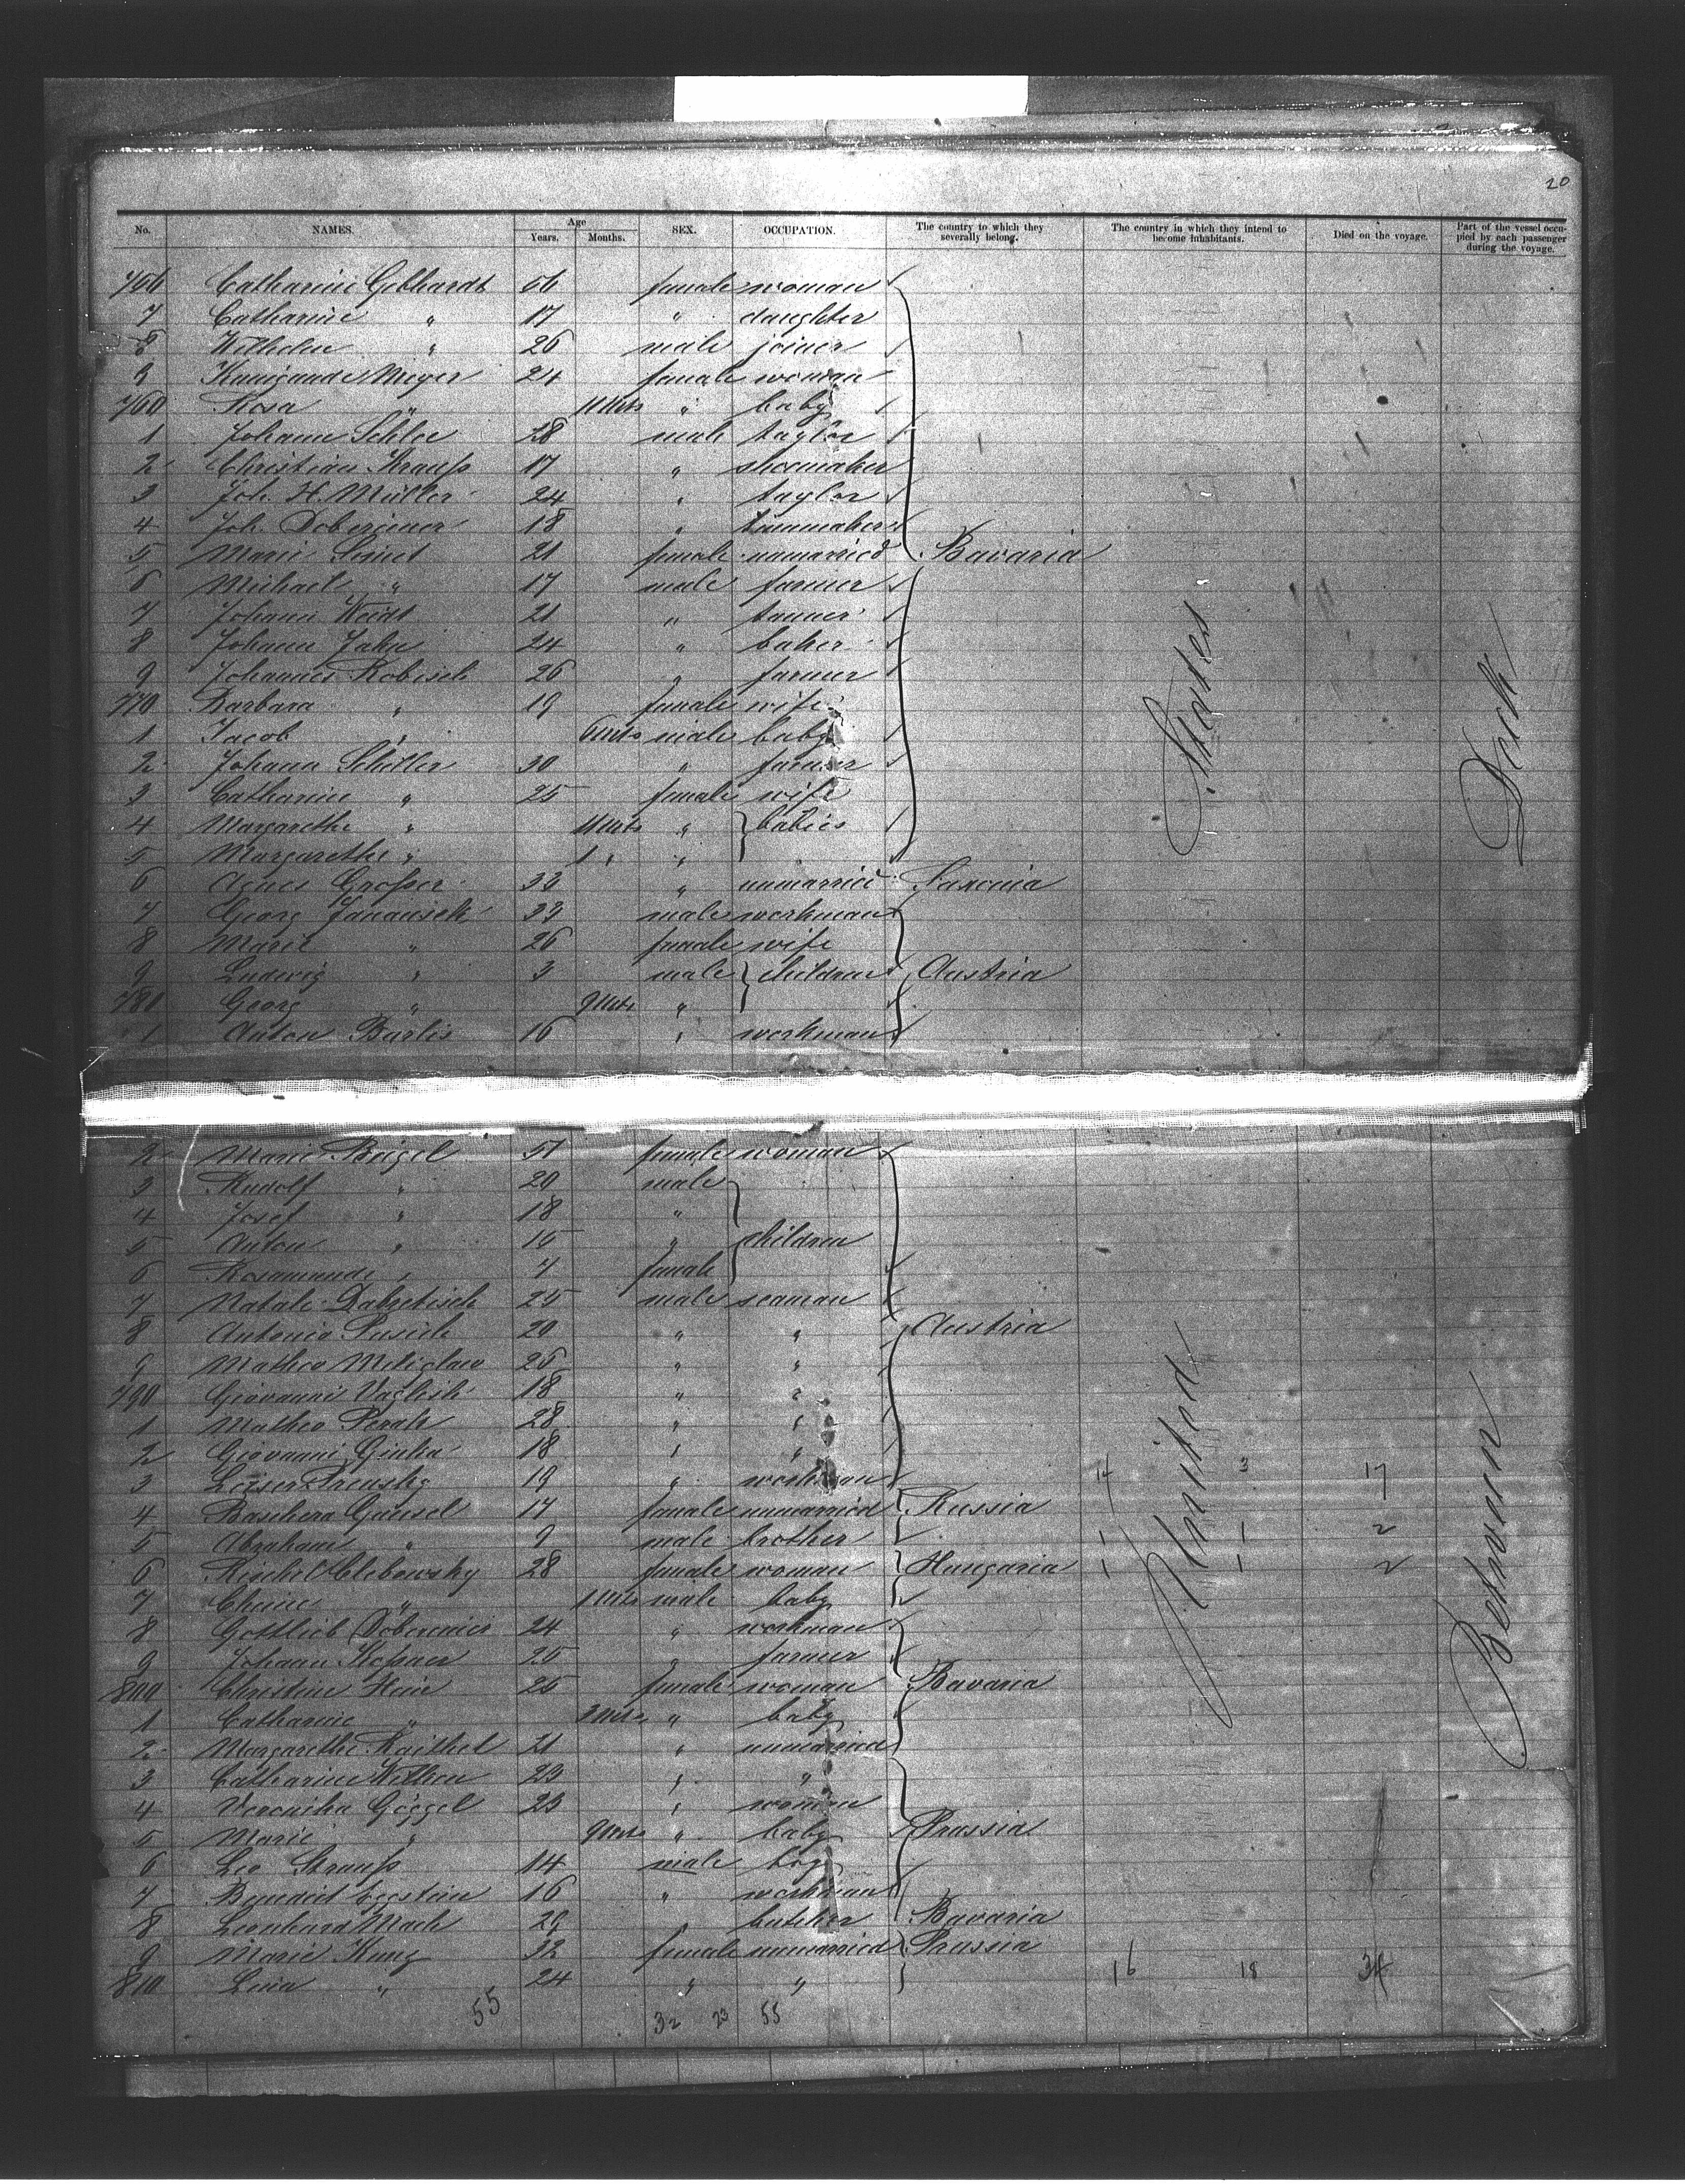 20
No. NAMES. Age Years. Months. SEX. OCCUPATION. The country to which they severally belong. The country in which they intend to become inhabitants. Died on the voyage. Part of the vessel occupied by each passenger during the voyage.
756 Catharine Gebhardt 56 female woman
7 Catharine " 17 " daughter
8 Wilhelm " 26 male joiner
9 Kunigunde Meyer 24 female woman
760 Rosa " 11 Mts " baby
1 Johann Schlee 28 male taylor
2 Christian Krauß 17 " shoemaker
3 Joh. H. Müller 24 " taylor
4 Joh. Dobereiner 18 "
5 Marie 21 female unmarried Bavaria
6 Michael " 17 male farmer
7 Johann Weidt 21 " tanner
8 Johann Jahn 24 " baker
9 Johannes Robisch 26 " farmer
770 Barbara " 19 female wife
1 Jacob " 6 Mts male baby
2 Johann Schiller 30 " farmer
3 Catharine " 25 female wife
4 Margarethe " 11 Mts " babies
5 Margarethe " 1 " "
6 Agnes Großer 33 " unmarried Saxonia
7 Georg Janausch 33 male workman
8 Marie " 26 female wife
9 Ludwig " 3 male children Austria
780 Georg " 9 Mts "
1 Anton Barlis 16 " workman
2 Marie Beigel 51 female woman
3 Rudolf " 20 male
4 Josef " 18 "
5 Anton " 15 " children
6 Rosamunde " 7 female
7 Natale 25 male seaman
8 Antonio 20 " " Austria
9 Matheo 26 " "
790 Giovanni 18 " "
1 Matheo 28 " "
2 Giovanni 18 " "
3 19 " workman 14 3 17
4 17 female unmarried Russia
5 Abraham " 9 male brother 1 1 2
6 28 female woman Hungaria 1 1 2
7 " 11 Mts male baby
8 Gottlieb Döbereiner 24 " workman
9 Johann 25 " farmer
800 Christine Hein 25 female woman Bavaria
1 Catharine " 3 Mts " baby
2 Margarethe Raithel 21 " unmarried
3 Catharine 23 " "
4 Veronika Göggel 23 " woman
5 Marie " 9 Mts " baby Prussia
6 Leo Strauß 14 male boy
7 Benedict Eggstein 16 " workman
8 Leonhard Mack 29 " butcher Bavaria
9 Marie Kunz 32 female unmarried Prussia
810 Lina " 24 " " 16 18 34
55 32 23 55
United States
Between Deck